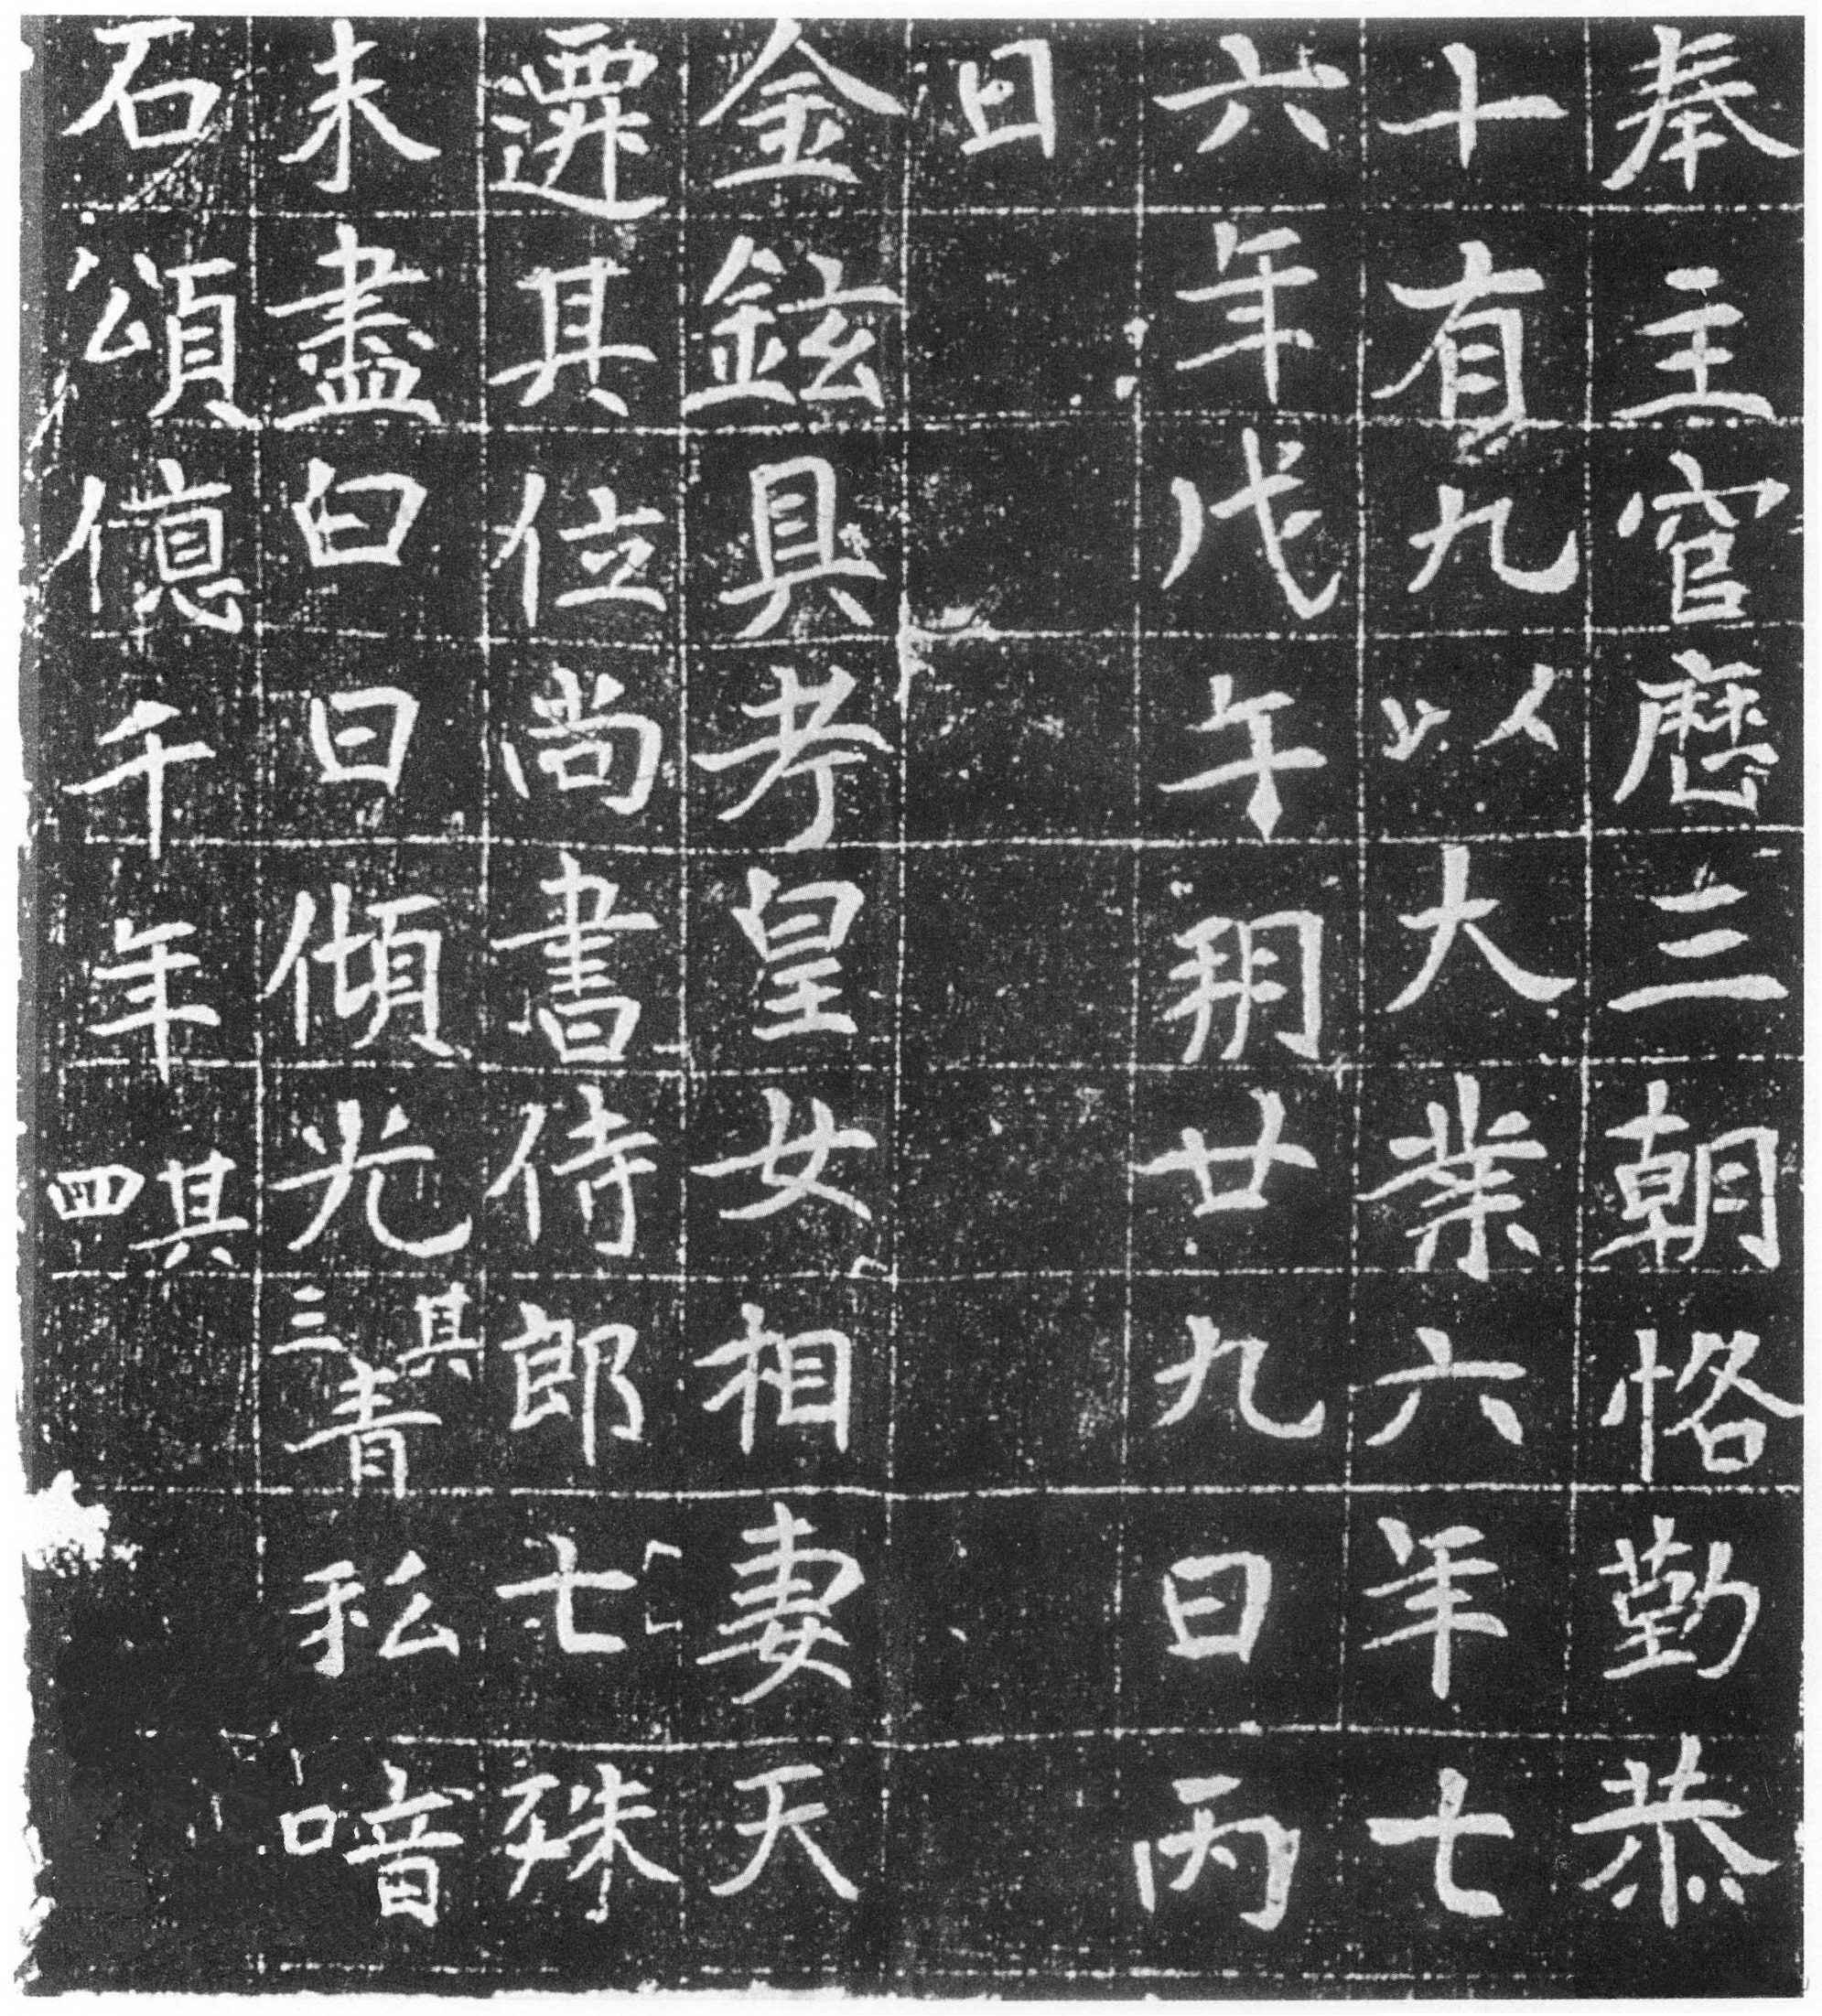 奉主官歷三朝恪勤恭
十有九以大業六年七
六年戊午朔廿九日丙
日
金鉉具考皇女相妻天
遷其位尚書侍郎七殊
未盡白日傾光其三青松喑
石頌億千年其四